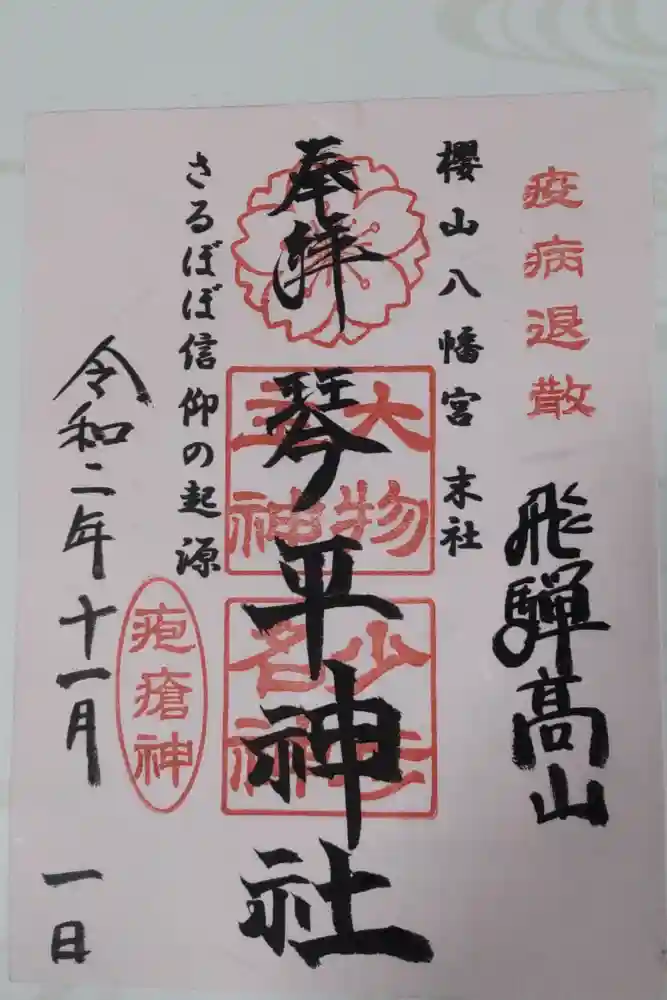 疫病退散
飛騨高山
櫻山八幡宮 末社
奉拝
琴平神社
大物主神
少彦名神
さるぼぼ信仰の起源
疱瘡神
令和二年十一月 一日